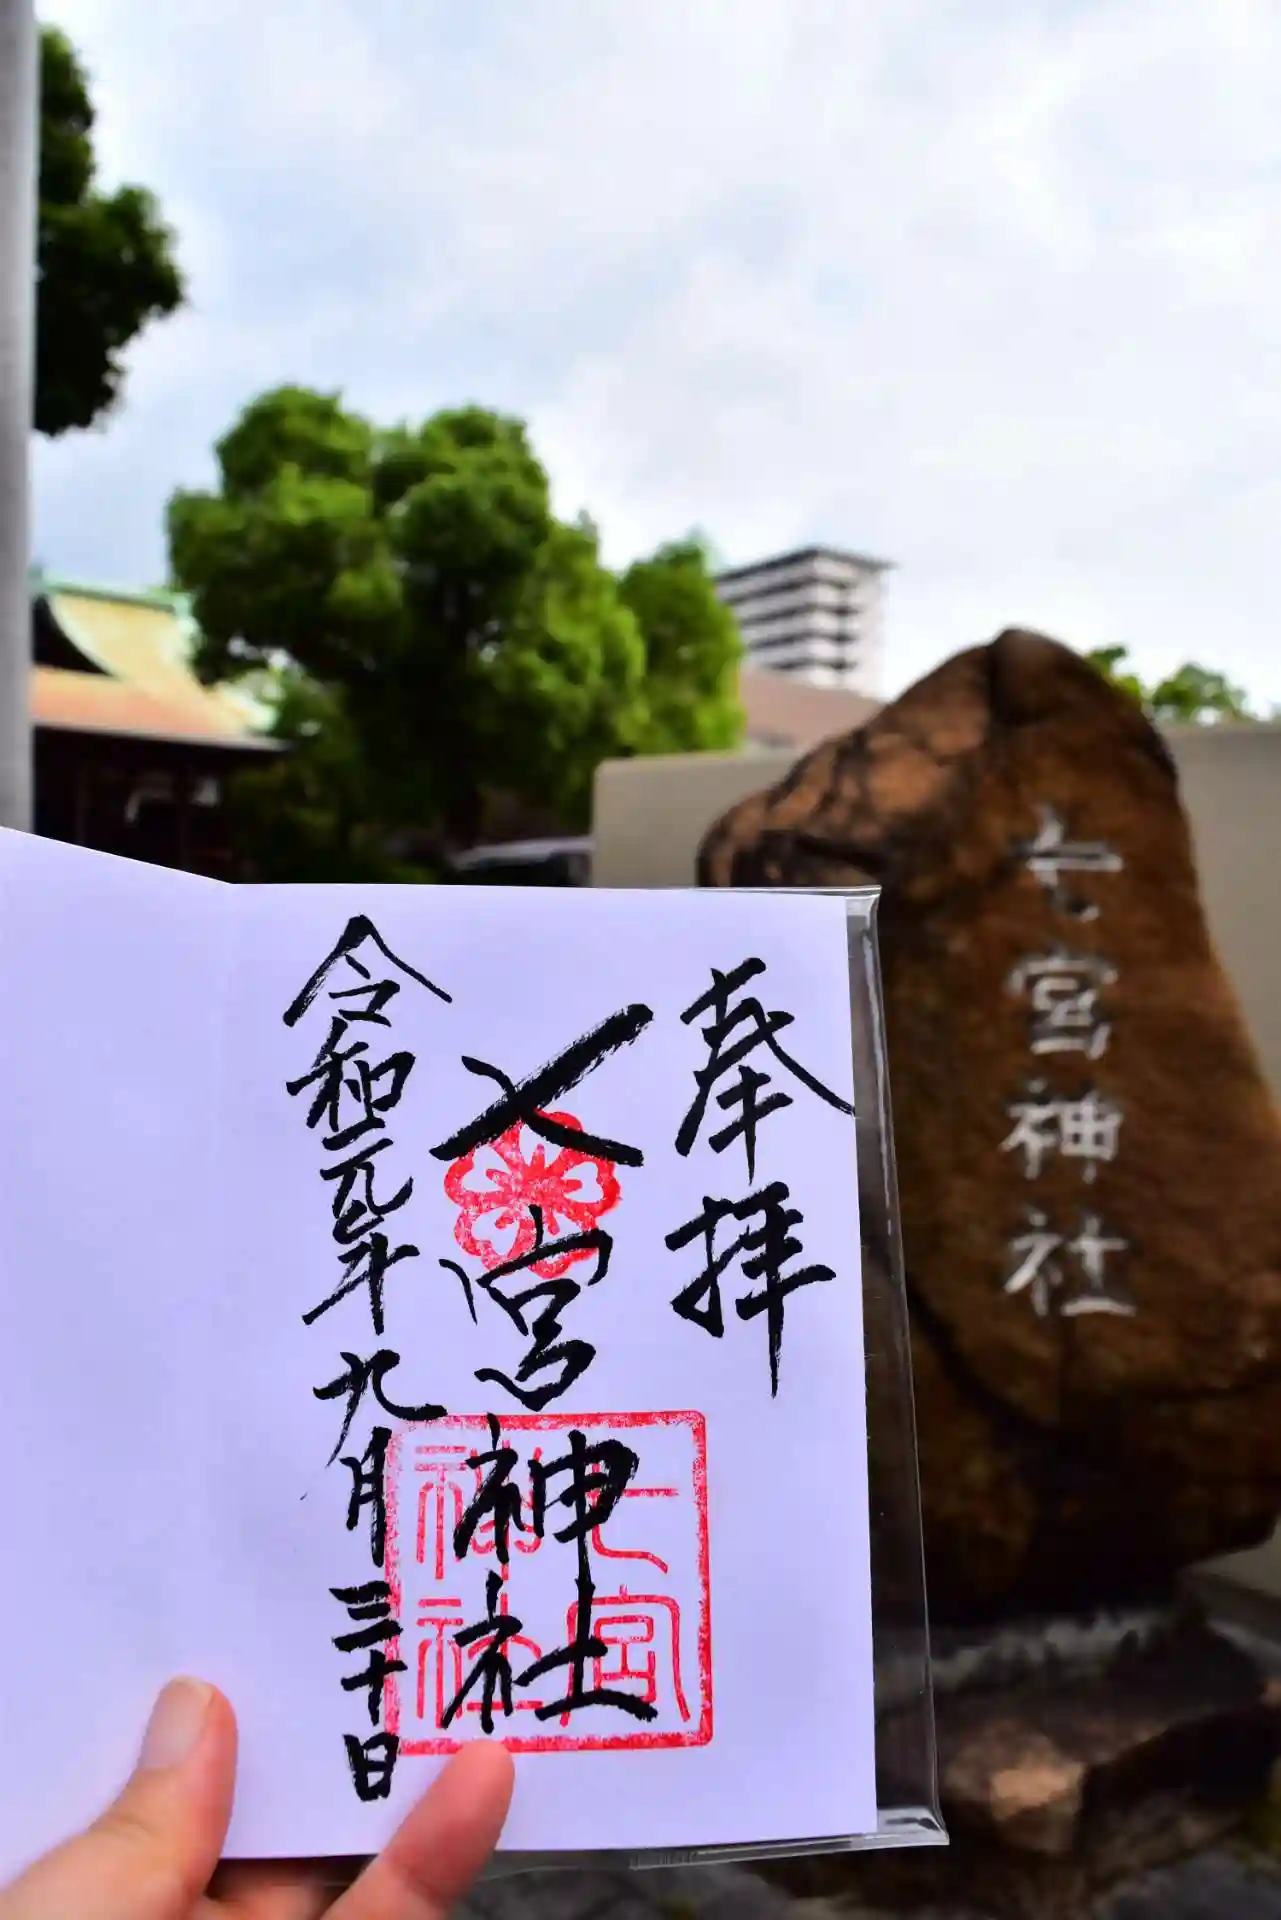 奉拝
七宮神社
令和元年九月三十日
七宮
神社
七宮神社